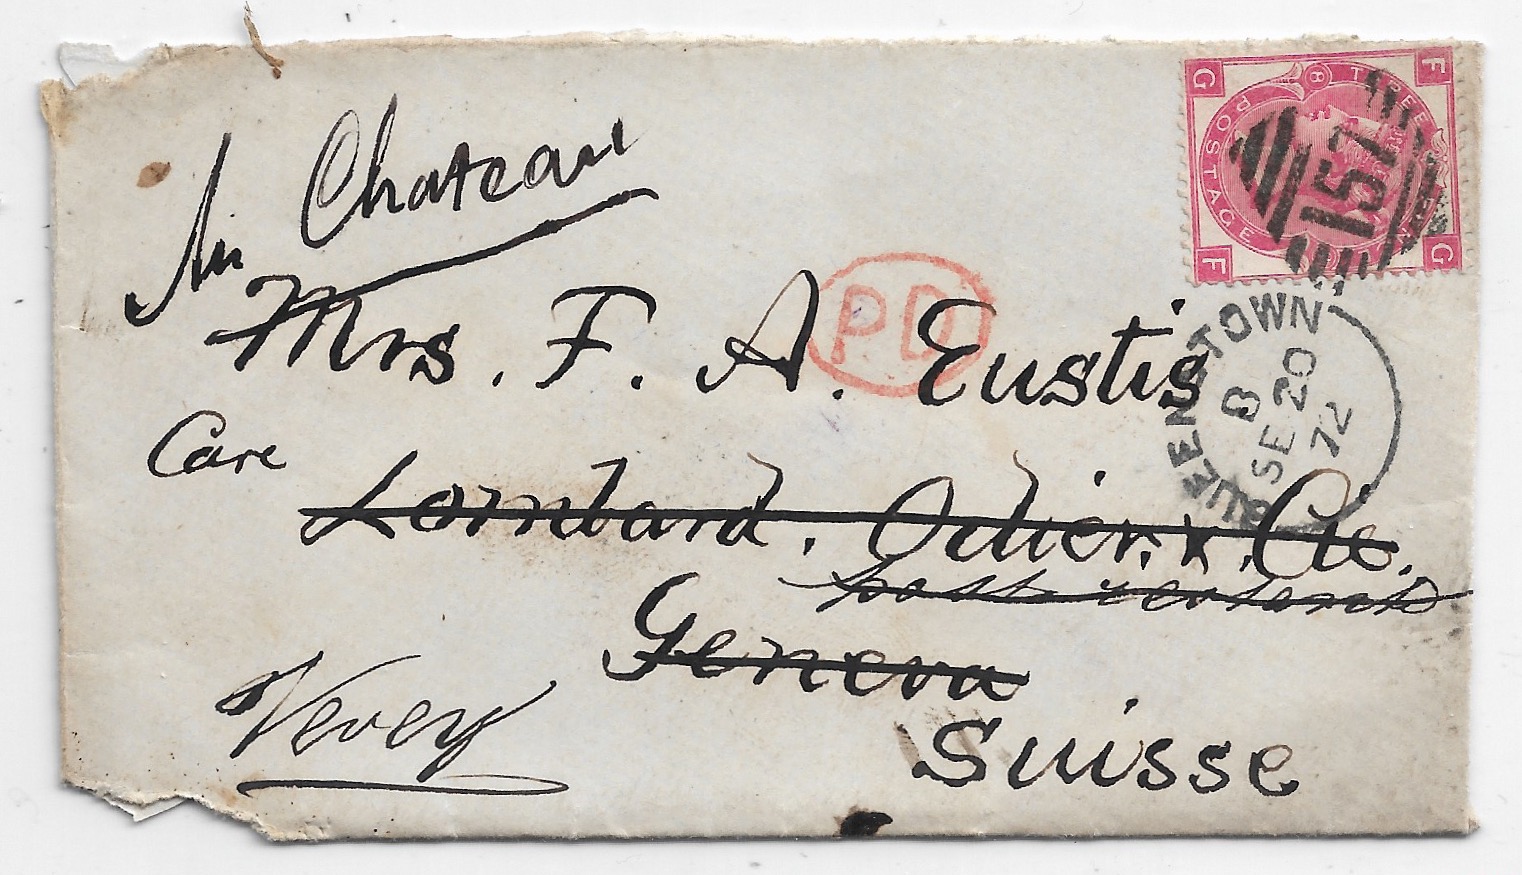 Au Chateau
Mrs. F. A. Eustis
Care
Lombard, Odier & Cie.
poste restante
Geneva
Suisse
Vevey
PD
G F
8 THREE
POSTAGE
F G
157
QUEENSTOWN
B
SE 20
72